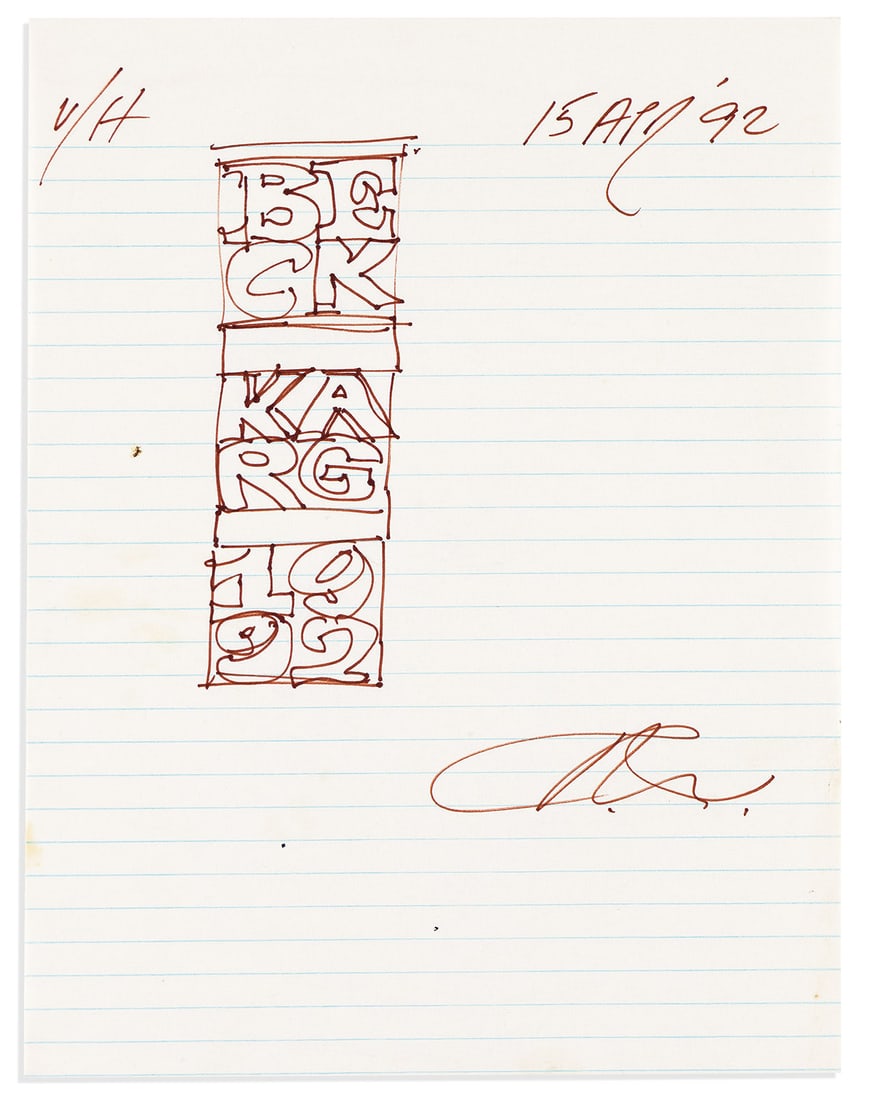 V/H
15 APR '92
BE
CK
KA
RG
19
92